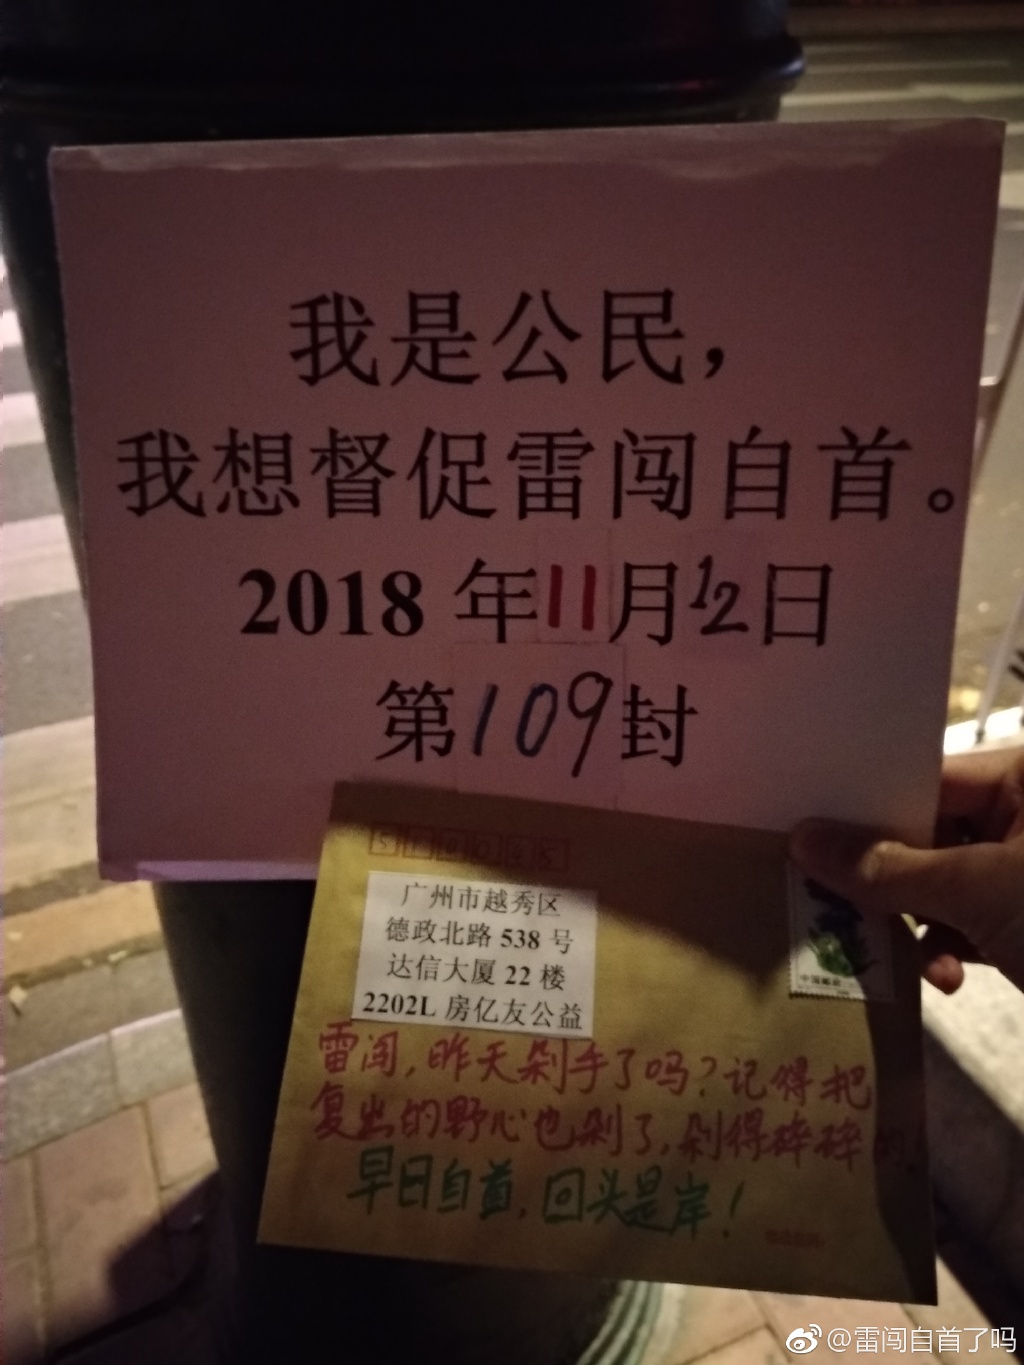 我是公民，
我想督促雷闯自首。
2018年11月12日
第109封
510045
广州市越秀区
德政北路 538 号
达信大厦 22 楼
2202L 房亿友公益
中国邮政
雷闯，昨天剁手了吗？记得把
复出的野心也剁了，剁得碎碎的！
早日自首，回头是岸！
@雷闯自首了吗